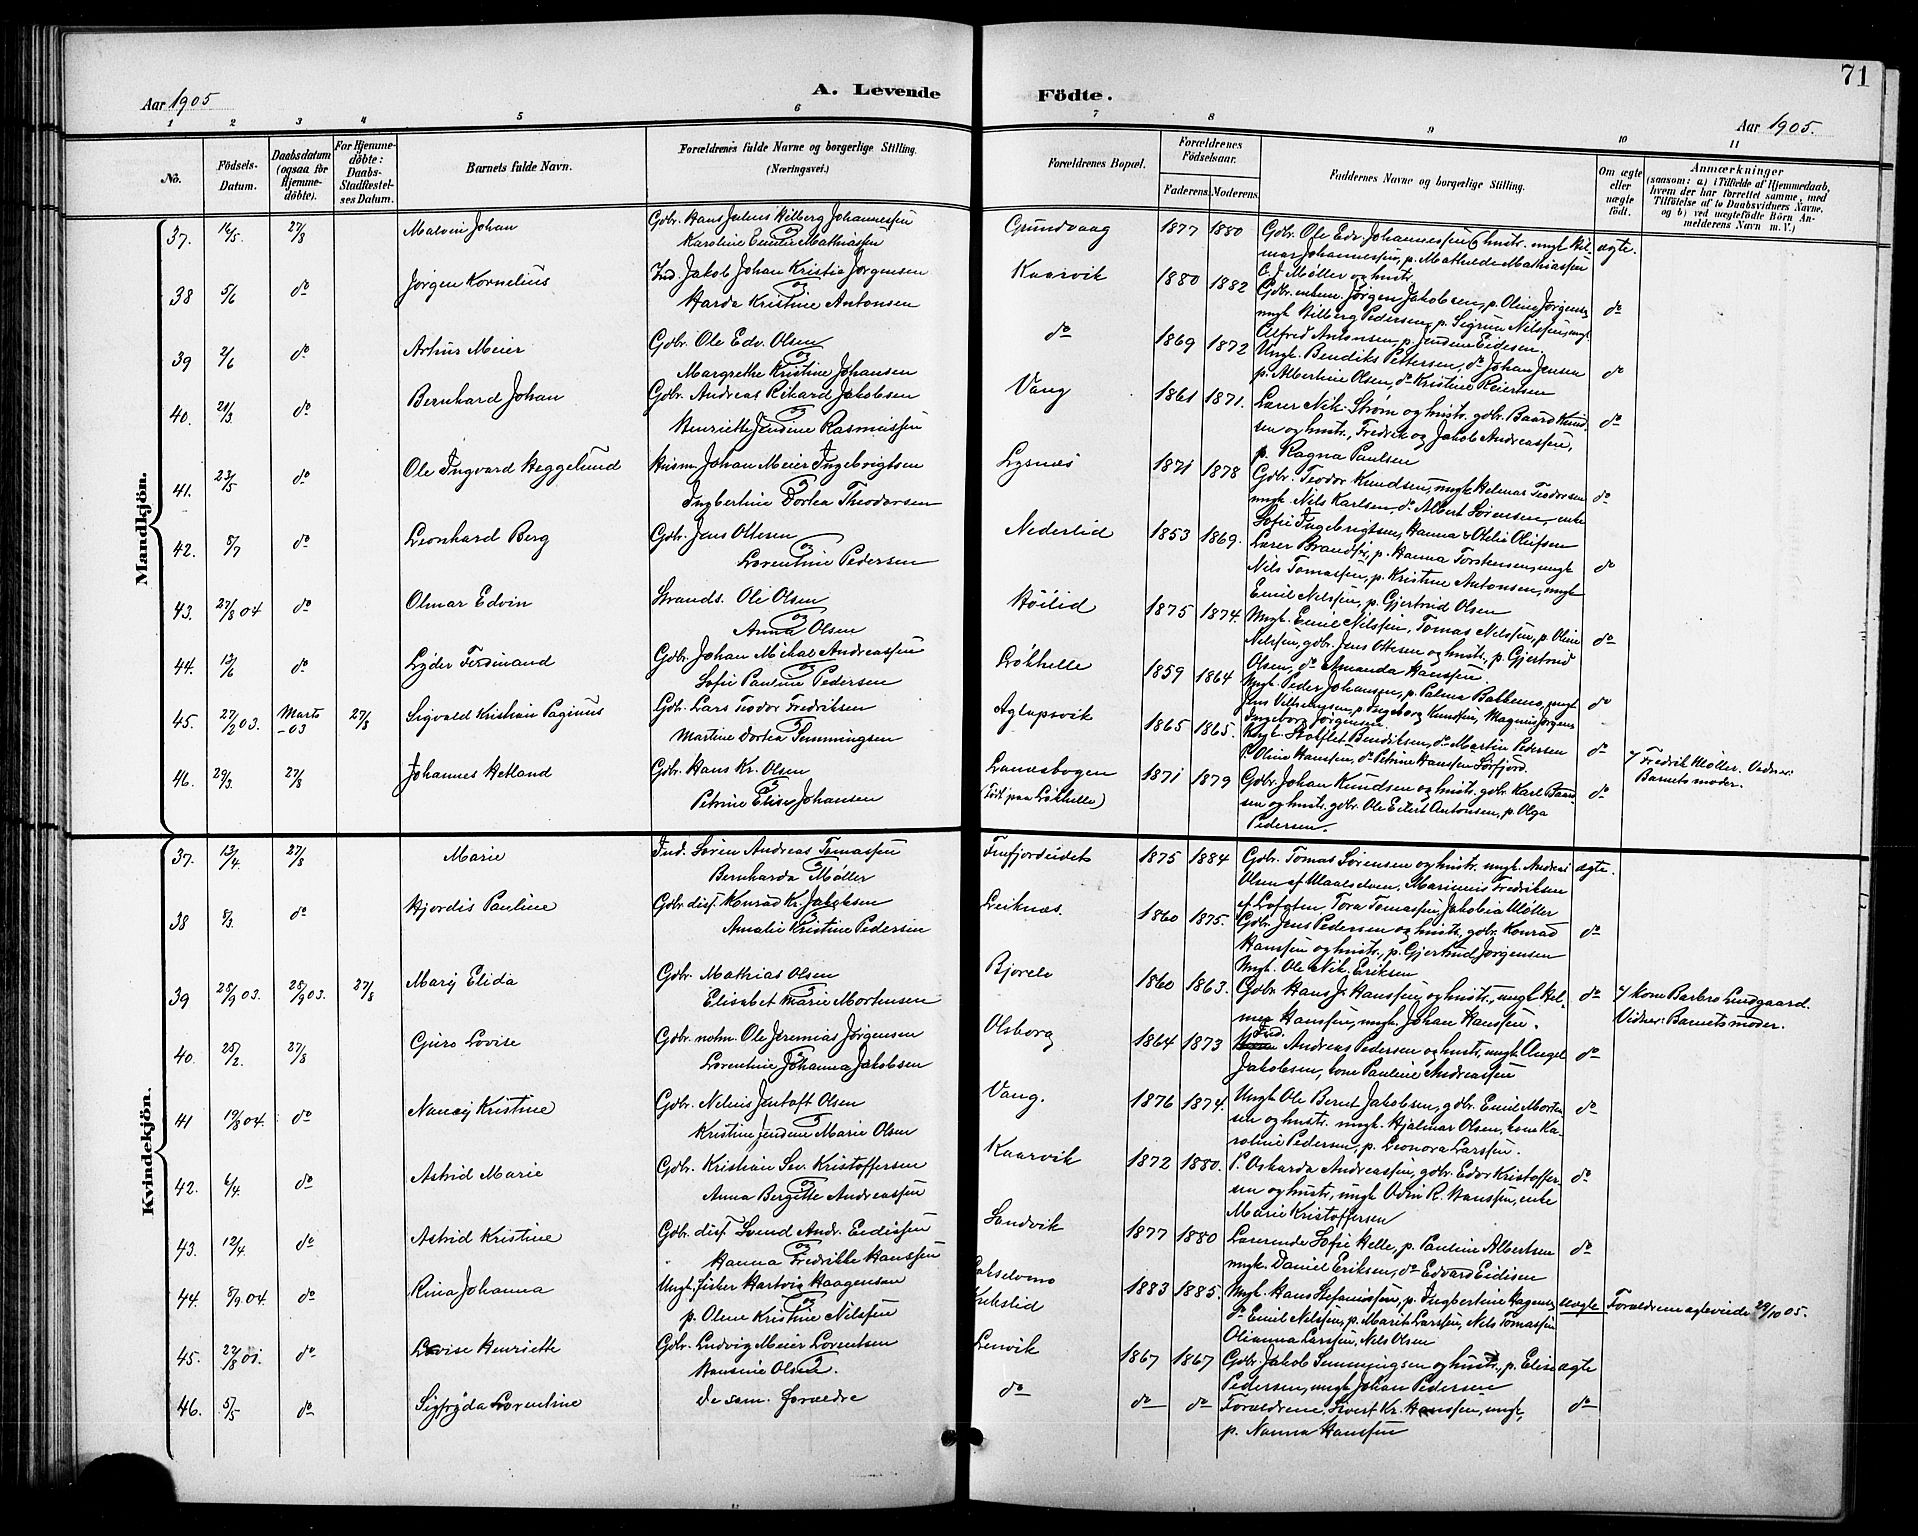 71
Aar 1905
A. Levende
Födte.
Aar 1905.
1 2 3 4 5 6 7 8 9 10 11
No.
Födsels-Datum.
Daabsdatum (ogsaa for Hjemme-döbte).
For Hjemme-döbte: Daabs-Stadfestel-ses Datum.
Barnets fulde Navn.
Forældrenes fulde Navne og borgerlige Stilling.
(Næringsvei.)
Forældrenes Bopæl.
Forældrenes Födselsaar.
Faderens.
Moderens.
Faddernes Navne og borgerlige Stilling.
Om ægte eller uægte födt.
Anmærkninger
(saasom: a) i Tilfælde af Hjemmedaab, hvem der har forrettet samme, med Tilföielse af to Daabsvidners Navne, og b) ved uægtefödte Börn An-melderens Navn m. V.)
Mandkjön.
37. 16/5 27/8 Malvin Johan Gdbr. Hans Julius Hilberg Johannessen og Karoline Emilie Mathiassen Grundvaag 1877 1880 Gdbr. Ole Edv. Johannessen og hustr. ungk. Hilmar Johannessen, p. Mathilde Mathiassen ægte.
38 5/6 do Jørgen Kornelius Ind. Jakob Johan Kristia Jørgensen og Harda Kristine Antonsen Kaarvik 1880 1882 C. J. Møller og hustr. Gdbr. enkem. Jørgen Jakobsen, p. Oline Jørgensen, ungk. Hilberg Pedersen, p. Sigrun Nilssen, ungk. do
39 2/6 do Arthur Meier Gdbr. Ole Edv. Olsen og Margrethe Kristine Johansen do 1869 1872 Alfred Antonsen, p. Jendine Eidesen, Ungk. Bendiks Pettersen, do Johan Jensen p. Albertine Olsen, do Kristine Reiersen do
40. 21/3 do Bernhard Johan Gdbr. Andreas Rikard Jakobsen og Henriette Jendine Rasmussen Vang 1861 1871. Lærer Nik. Strøm og hustr. gdbr. Baard Knudsen og hustr., Fredrik og Jakob Andreassen, p. Ragna Paulsen do
41. 23/5 do Ole Ingvard Heggelund Husm. Johan Meier Ingebrigtsen og Ingbertine Dortea Theodorsen Lysnæs 1871 1878 Gdbr. Teodor Knudsen, ungk. Helmar Teodorsen ungk. Nils Karlsen, do Albert Sørensen, enke Sofie Ingebrigtsen, Hanna & Otelie Oleifsen do
42. 5/7 do Leonhard Berg Gdbr. Jens Ottesen og Lorentine Pedersen Nederlid 1853 1869. Lærer Brandsø, p. Hanna Torstensen, ungk. Nils Tomassen, p. Kristine Antonsen, ungk. Emil Nilssen, p. Gjertrud Olsen do
43. 27/8 04 do Olmar Edvin Strands. Ole Olsen og Anna Olsen Høilid 1875 1874. Ungk. Emil Nilssen, Tomas Nilssen, p. Oline Nilssen, gdbr. Jens Ottesen og hustr., p. Gjertrud Olsen, do Amanda Hanssen do
44. 13/6 do Lyder Ferdinand Gdbr. Johan Mikal Andreassen og Sofie Pauline Pedersen Løkhelle 1859 1864 Ungk. Peder Johansen, p. Palma Bakkemo, ungk. Jens Vilhelmsen, p. Ingeborg Knudsen, Magnus Jørgens. Ingeborg Jørgensen do
45. 27/2 03. Marts -03 27/8 Sigvald Kristian Paginus Gdbr. Lars Teodor Fredriksen Martine Dortea Simmingsen Aglapsvik 1865 1865. Ungk. Stoflet Bendiksen, do Martin Pedersen p. Oline Hanssen, do Petrine Hanssen Sørfjord. do v/ Fredrik Møller. Vidner: Barnets moder.
46. 29/3. 27/8 Johannes Hetland Gdbr. Hans Kr. Olsen og Petrine Elise Johansen Lanesbogen (født paa Løkhelle) 1871 1879 Gdbr. Johan Knudsen og hustr. gdbr. Karl Baardsen og hustr. gdbr. Ole Edert Antonsen, p. Olga Pedersen. do
Kvindekjön.
37. 13/4 27/8 Marie Ind. Søren Andreas Tomassen og Bernharda Møller Finfjordeidet 1875 1884 Gdbr. Tomas Sørensen og hustr. ungk. Andreas Olsen af Maalselven, Marinius Fredriksen af Lofoten, Tora Tomassen, Jakobia Møller ægte.
38 8/3. do Hjordis Pauline Gdbr. disp. Konrad Kr. Jakobsen og Amalie Kristine Pedersen Leiknæs. 1860 1875. Gdbr. Jens Pedersen og hustr., gdbr. Konrad Hanssen og hustr., p. Gjertrud Jørgensen Ungk. Ole Nik. Eriksen do
39 28/9 03. 28/9 03. 27/8 Mary Elida Gdbr. Mathias Olsen og Elisabet Marie Mortensen Bjorele 1860 1863. Gdbr. Hans J. Hanssen og hustr., ungk. Helmer Hanssen, ungk. Johan Hanssen. do v/ Kone Barbro Lundgaard. Vidner: Barnets moder.
40. 25/2. 27/8 Guro Lovise Gdbr. nolm. Ole Jeremias Jørgensen og Lorentine Johanna Jakobsen Olsborg 1864 1873 Ind. Andreas Pedersen og hustr., ungk. Angel Jakobsen, kone Pauline Andreassen do
41 19/8 04. do Nancy Kristine Gdbr. Nelius Jentoft Olsen og Kristine Jendine Marie Olsen Vang. 1876 1874. Ungk. Ole Bernt Jakobsen, gdbr. Emil Mortensen og hustr. ungk. Hjalmar Olsen, kone Karoline Pedersen, p. Leonora Larssen. do
42. 6/4. do Astrid Marie Gdbr. Kristian Sev. Kristoffersen og Anna Bergitte Andreassen Kaarvik 1872 1880. P. Osharda Andreassen, gdbr. Edor Kristoffersen og hustr., ungk. Odin R. Hanssen, enke Marie Kristoffersen do
43. 12/4 do Astrid Kristine Gdbr. disp. Svend Andr. Eidissen og Hanna Fredrikke Hanssen Sandvik 1877 1880 Lærerinde Sofie Helle, p. Pauline Albertsen ungk. Daniel Eriksen, do Edvard Eidisen do
44. 8/9 04. do Rina Johanna Ungk. fisker Hartvig Haagensen og p. Oline Kristine Nilssen Lakselvmo Krikslid 1883 1885. Ungk. Hans Stefanussen, p. Ingbertine Hagenes do Emil Nilssen, p. Marit Larssen, Nils Tomassen Olianna Larssen, Nels Olsen uægte Forældrene ægteviede 29/10 05.
45. 27/8 01. do Lovise Henriette Gdbr. Ludvig Meier Lorentsen og Hansine Olsen. Lenvik 1867 1867 Gdbr. Jakob Simmingsen og hustr., p. Elise Pedersen, ungk. Johan Pedersen ægte
46. 5/5 do Sigfryda Lorentine De sam. forældre do do do Forældrene, Sivert Kr. Hanssen, ungk, p. Nanna Hanssen do